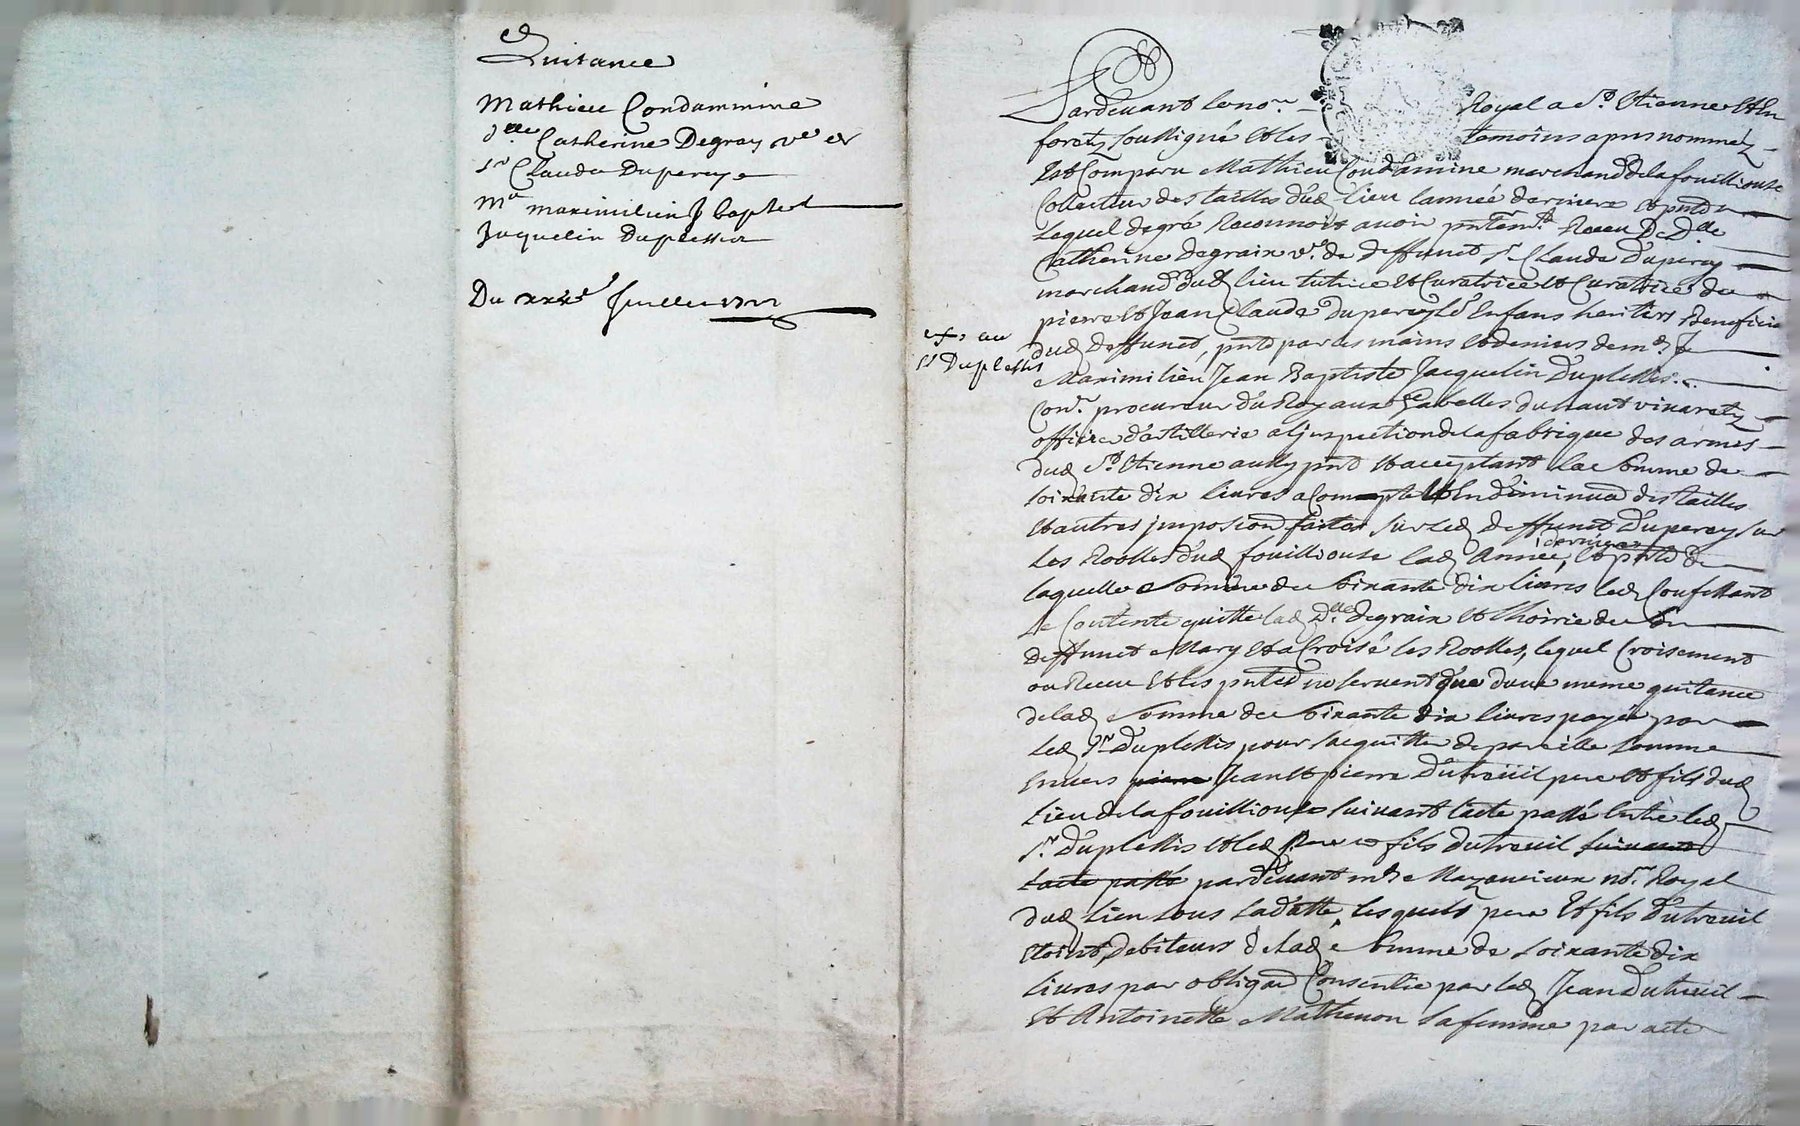 Quitance
Mathieu Condammine
d.lle Catherine Degray v.e de
S.r Claude Duperay
M.e maximilien J baptiste
Jaquelin Duplessis
Du Juillet
exp au
S.r Duplessis
Pardevant le no.re Royal a S.t Etienne et En
foretz soussigné et les temoins apres nommez
Est Comparu Mathieu Condamine marchand de la fouillouse
Collecteur des tailles dud lieu lannée derniere et pnte
Lequel de gré Reconnoit avoir pntem.t Receu De D.lle
Catherine degraix v.e de deffunct S.r Claude Duperay
marchand dud lieu tutrice et Curatrice et Curatrice de
pierre et Jean Claude Duperay Enfans heritiers Beneficie
dud Deffunct, pnte par les mains et deniers de m.e
Maximilien Jean Baptiste Jacquelin Duplessis
Con.er procureur du Roy aux Gabelles du haut vivaretz
officier d'artillerie a l'jnspection de la fabrique des armes
dud S.t Etienne aussy pnt et acceptant La Somme de
soixante dix livres a Compte Et En diminuon des tailles
Et autres jmposiōn faites sur Led Deffunct Duperay sur
Les Roolles dud fouillouse lad Année derniere, et pnte De
laquelle Somme de Soixante dix livres led Confessant
Se Contente quitte lad D.lle degraix et lhoirie du
deffunct Mary Et a Croisé les Roolles, lequel Croisement
ou Receu Et les pntes ne servent que dune meme quitance
de lad Somme de Soixante dix livres payée par
Led S.r Duplessis pour sacquitter de pareille Somme
Envers pierre Jean Et pierre Dutreüil pere Et fils dud
Lieu de la fouillouse suivant lacte passé Entre led
S.r Duplessis et led Pere et fils dutreuil suivant
Lacte passé pardevant m.e Mazenieux no.re Royal
dud Lieu sous sa datte, lesquels pere Et fils Dutreuil
Etoint Debiteurs de lad Somme de soixante dix
livres par obligaōn Consentie par led Jean Dutreuil
Et Antoinette Mathevon sa femme par acte